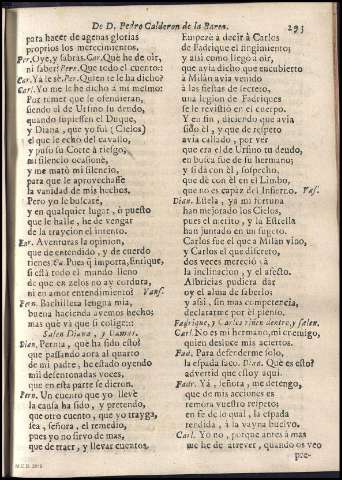 De D. Pedro Calderon de la Barca. 293
para hacer de agenas glorias
proprios los merecimientos.
Per. Oye, y sabràs. Car. Què he de oir,
ni saber? Pern. Que todo el cuento:
Car. Yà le sè. Per. Quien te le ha dicho?
Carl. Yo me le he dicho à mi mesmo:
Por temer que le ofendieran,
siendo el de Ursino su deudo,
quando supiessen el Duque,
y Diana, que yo fui (Cielos)
el que le echò del cavallo,
y puso su Corte à riesgo;
mi silencio ocasionè,
y me matò mi silencio,
para que le aprovechasse
la vanidad de mis hechos.
Pero yo le buscarè,
y en qualquier lugar, ò puesto
que le halle, he de vengar
de la traycion el intento.
Ear. Aventuras la opinion,
que de entendido, y de cuerdo
tienes. Ca. Pues què importa, Enrique,
si està todo el mundo lleno
de que en zelos no ay cordura,
ni en amor entendimiento? Vans.
Pern. Bachillera lengua mia,
buena hacienda avemos hecho;
mas què và que si colige:::
Salen Diana, y Damas.
Dian. Pernia, què ha sido esto?
que passando aora al quarto
de mi padre, he estado oyendo
mil desentonadas voces,
que en esta parte se dieron.
Pern. Un cuento que yo llevè
la causa ha sido, y pretendo,
que otro cuento, que yo trayga,
sea, señora, el remedio,
pues yo no sirvo de mas,
que de traer, y llevar cuentos.
Empezè à decir à Carlos
de Fadrique el fingimiento;
y assi como llegò à oir,
que avia dicho que encubierto
à Milàn avia venido
à las fiestas de secreto,
una legion de Fadriques
se le revistiò en el cuerpo.
Y en fin, diciendo que avia
sido èl, y que de respeto
avia callado, por ver
que era el de Ursino tu deudo,
en busca fue de su hermano;
y si dà con èl, sospecho,
que dè con èl en el Limbo,
que no es capàz del Infierno. Vas.
Dian. Estela, ya mi fortuna
han mejorado los Cielos,
pues el merito, y la Estrella
han juntado en un sugeto.
Carlos fue el que à Milàn vino,
y Carlos el que discreto,
dos veces mereciò à
la inclinacion, y el afecto.
Albricias pudiera dar
oy el alma de saberlo;
y assi, sin mas competencia,
declararme por èl pienso.
Fadrique, y Carlos riñen dentro, y salen.
Carl. No es mi hermano, mi enemigo,
quien desluce mis aciertos.
Fad. Para defenderme solo,
la espada saco. Dian. Què es esto?
advertid que estoy aqui.
Fadr. Yà, señora, me detengo,
que de mis acciones es
remora vuestro respeto:
en fe de lo qual, la espada
rendida, à la vayna buelvo.
Carl. Yo no, porque antes à mas
me he de atrever, quando os veo
pre-
M.C.D. 2015